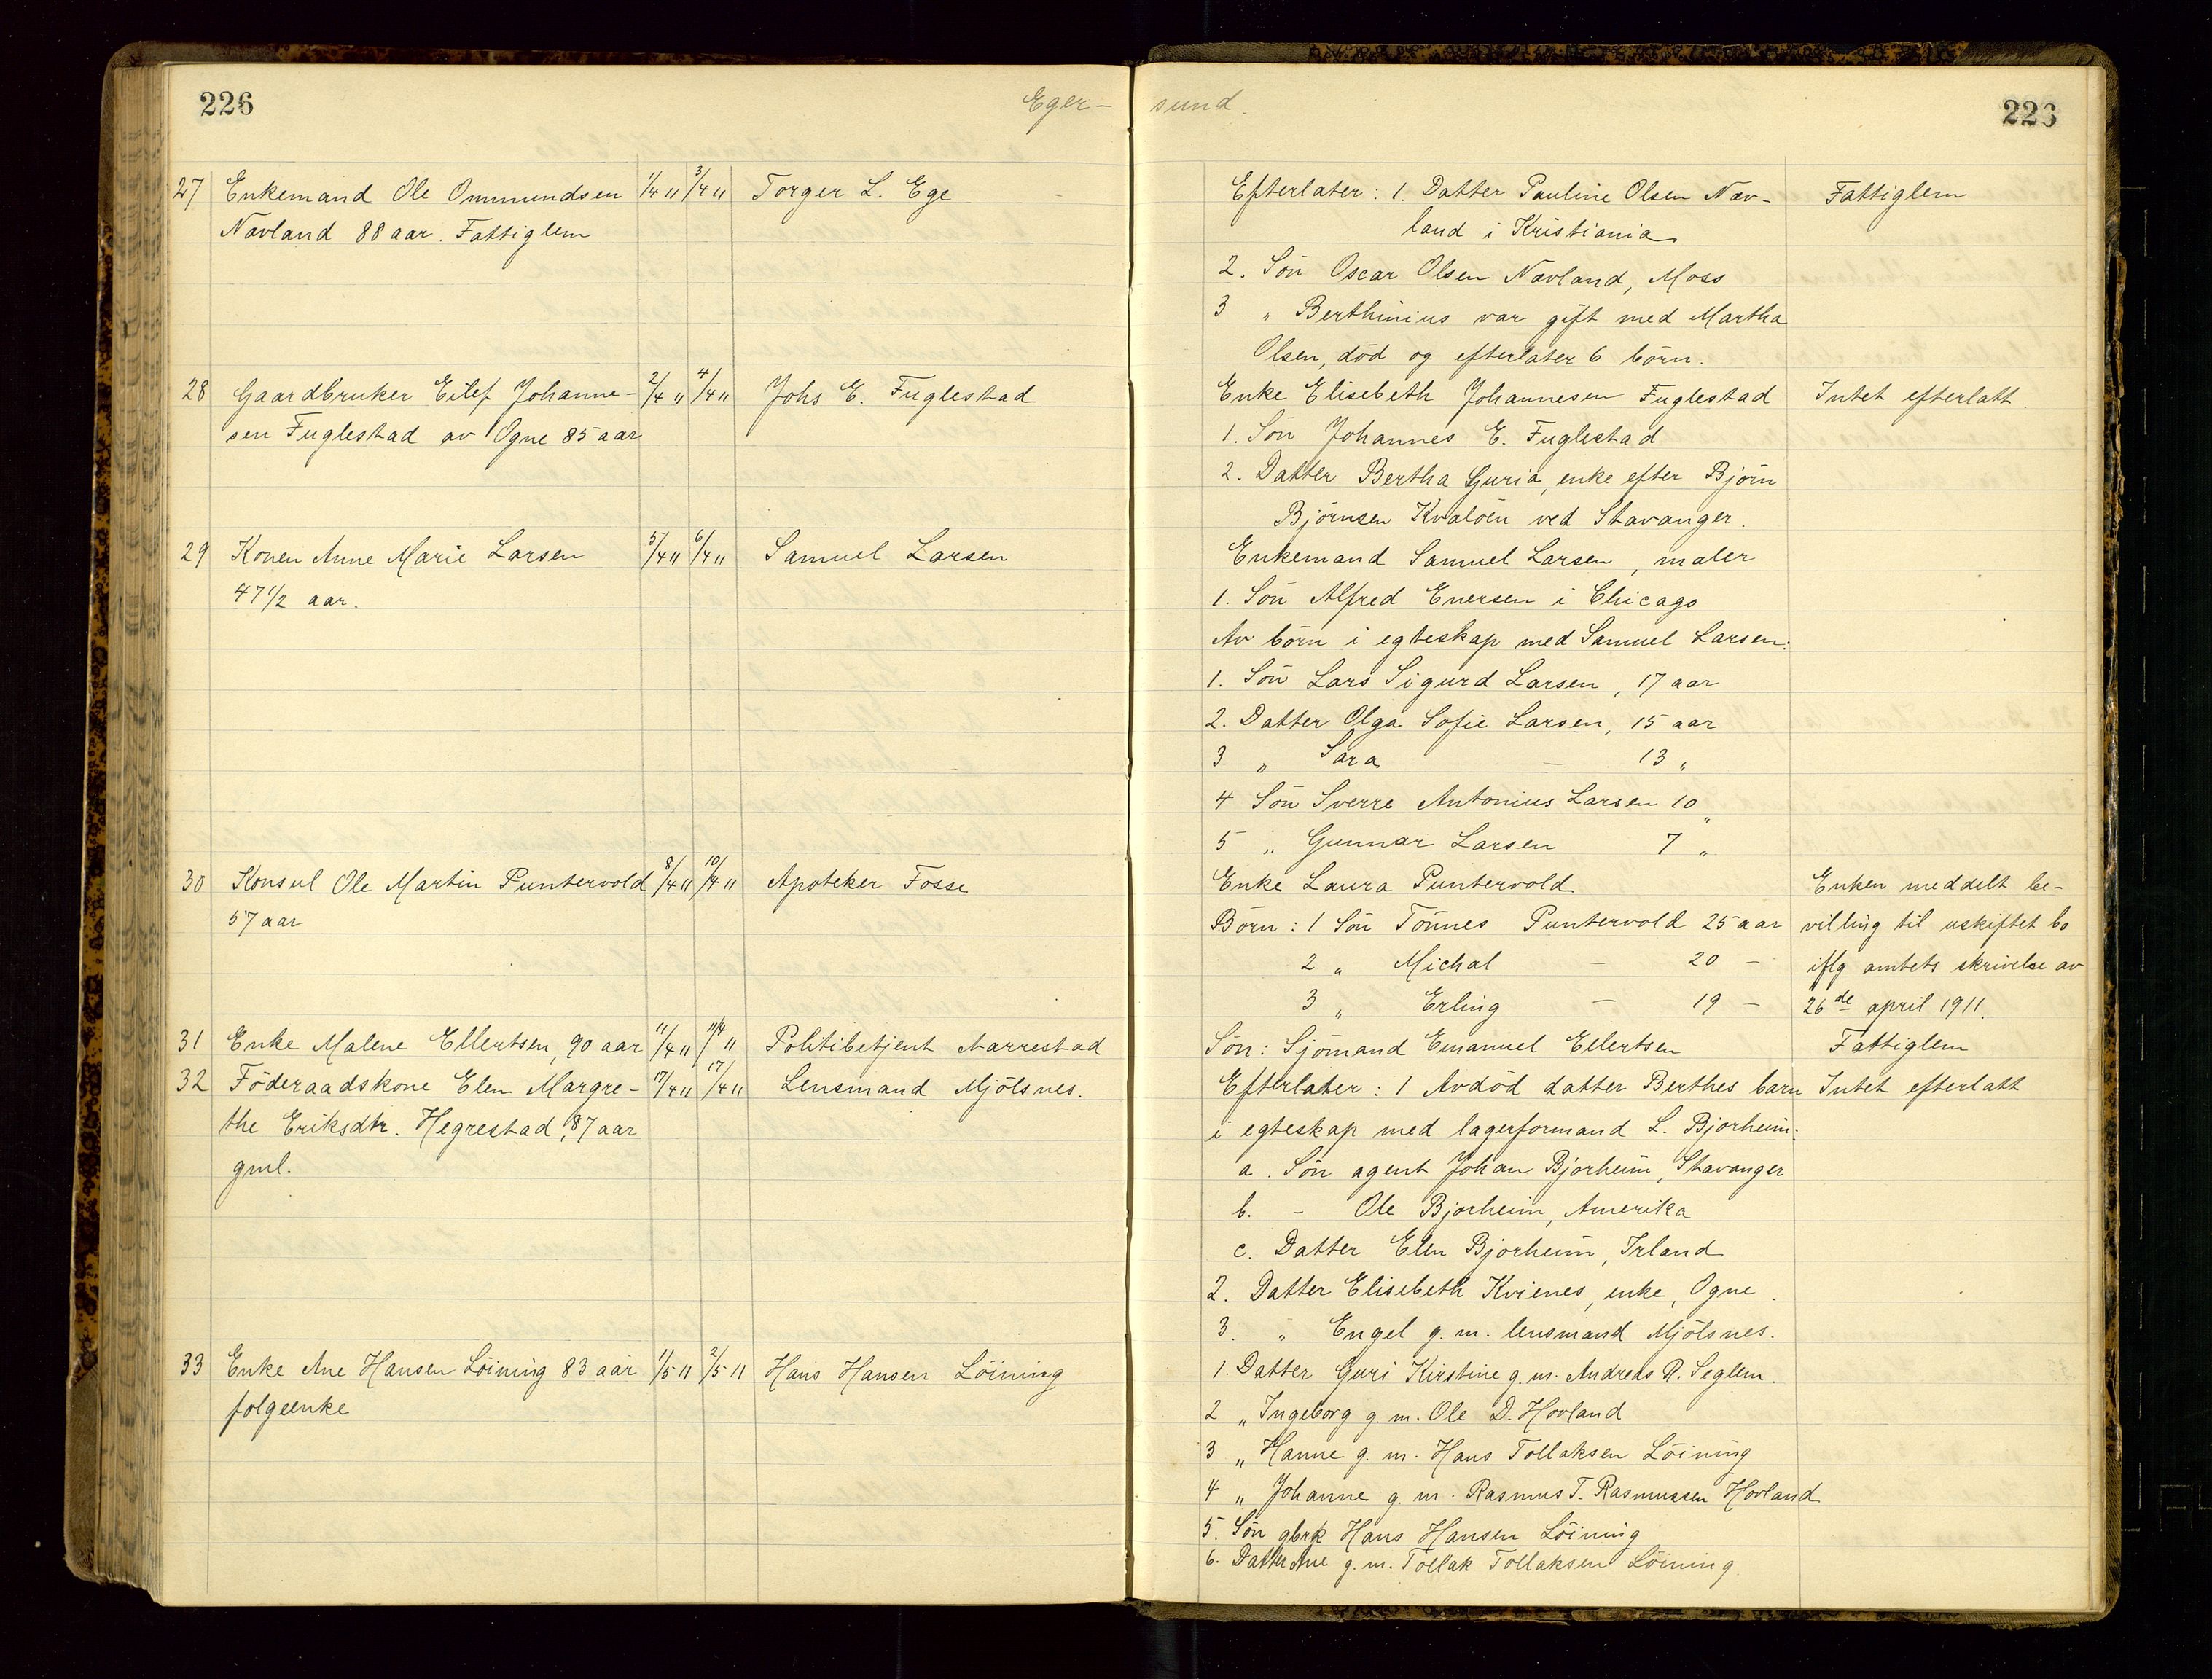 226
Eger-
sund.
226
27 Enkemand Ole Ommundsen 1/4 11 3/4 11 Torger L. Ege
Navland 88 aar. Fattiglem
Efterlater: 1. Datter Pauline Olsen Nav- Fattiglem
land i Kristiania
2. Sön Oscar Olsen Navland, Moss
3 " Berthinius var gift med Martha
Olsen, död og efterlater 6 börn.
28 Gaardbruker Eilef Johanne- 2/4 11 4/4 11 Johs E. Fuglestad
sen Fuglestad av Ogne 85 aar
Enke Elisebeth Johannesen Fuglestad Intet efterlatt.
1. Sön Johannes E. Fuglestad
2. Datter Bertha Guria, enke efter Björn
Björnsen Kvalöen ved Stavanger.
29 Konen Anne Marie Larsen 5/4 11 6/4 11 Samuel Larsen
47 1/2 aar.
Enkemand Samuel Larsen, maler
1. Sön Alfred Enersen i Chicago
Av börn i egteskap med Samuel Larsen:
1. Sön Lars Sigurd Larsen, 17 aar
2. Datter Olga Sofie Larsen, 15 aar
3 " Sara — 13 "
4 Sön Sverre Antonius Larsen 10 "
5 " Gunnar Larsen 7 "
30 Konsul Ole Martin Puntervold 8/4 11 10/4 11 Apoteker Fosse
57 aar
Enke Laura Puntervold Enken meddelt be-
Börn: 1 Sön Tönnes Puntervold 25 aar villing til uskiftet bo
2 " Michal — 20 — iflg amtets skrivelse av
3 " Erling — 19 — 26de april 1911.
31 Enke Malene Ellertsen, 90 aar 11/4 11 11/4 11 Politibetjent Aarrestad
Sön: Sjömand Emanuel Ellertsen Fattiglem
32 Föderaadskone Elen Margre- 17/4 11 17/4 11 Lensmand Mjölsnes.
the Eriksdtr. Hegrestad, 87 aar
gml.
Efterlater: 1 Avdöd datter Berthes barn Intet efterlatt
i egteskap med lagerformand L. Bjorheim:
a. Sön agent Johan Bjorheim, Stavanger
b. - Ole Bjorheim, Amerika
c. Datter Elen Bjorheim, Irland
2. Datter Elisebeth Kvienes, enke, Ogne.
3. " Engel g. m. lensmand Mjölsnes.
33 Enke Ane Hansen Löining 83 aar 1/5 11 2/5 11 Hans Hansen Löining
folgeenke
1. Datter Guri Kirstine g. m. Andreas R. Seglem.
2 " Ingeborg g. m. Ole D. Hovland
3 " Hanne g. m. Hans Tollaksen Löining
4 " Johanne g. m. Rasmus T. Rasmussen Hovland
5. Sön gbrk Hans Hansen Löining
6. Datter Ane g. m. Tollak Tollaksen Löining.